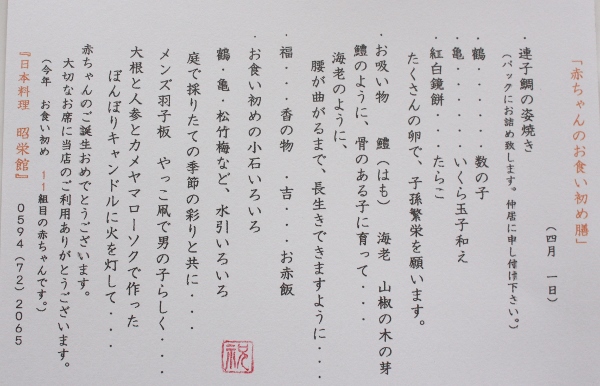 「赤ちゃんのお食い初め膳」
（四月　一日）
・連子鯛の姿焼き
（パックにお詰め致します。仲居に申し付け下さい。）
・鶴・・・・・・数の子
・亀・・・・・・いくら玉子和え
・紅白鏡餅・・・・たらこ
たくさんの卵で、子孫繁栄を願います。
・お吸い物　鱧（はも）　海老　山椒の木の芽
鱧のように、骨のある子に育って・・・・
海老のように、
腰が曲がるまで、長生きできますように・・・・
・福・・・香の物　・吉・・・お赤飯
・お食い初めの小石いろいろ
鶴・亀・松竹梅など、水引いろいろ
庭で採りたての季節の彩りと共に・・・・
メンズ羽子板　やっこ凧で男の子らしく・・・・
大根と人参とカメヤマローソクで作った
ぼんぼりキャンドルに火を灯して・・・・
赤ちゃんのご誕生おめでとうございます。
大切なお席に当店のご利用ありがとうございます。
（今年　お食い初め　11組目の赤ちゃんです。）
『日本料理　昭栄館』　0594（72）2065
祝